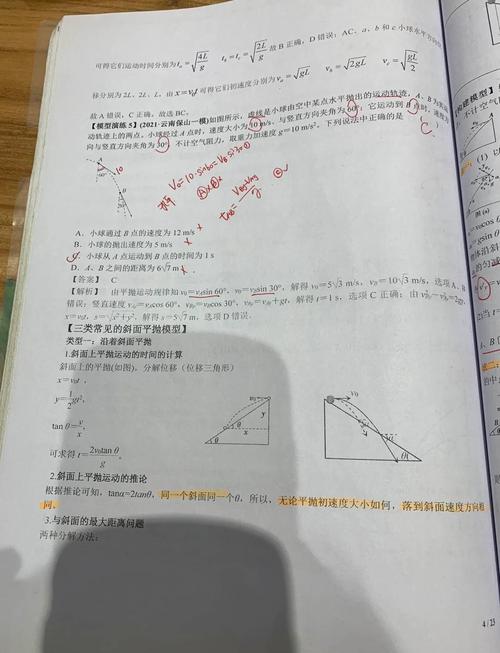 可得它们运动时间分别为ta=√4L/g tb=tc=√2L/g 故B正确，D错误；AC、a、b和c小球水平方向位
移分别为2L、2L、L，由x=v0t可得它们初速度分别为va=√gL vb=√2gL vc=√gL/2
故A错误，C正确。故选BC。
【模型演练5】(2021·云南保山一模)如图所示，虚线是小球由空中某点水平抛出的运动轨迹，A、B为其运
动轨迹上的两点。小球经过A点时，速度大小为10 m/s、与竖直方向夹角为60°；它运动到B点时，速度方
向与竖直方向夹角为30°。不计空气阻力，取重力加速度g=10 m/s²。下列说法中正确的是 C
A
10
60°
B
30°
V0=10·sin60=VB sin30①
A．小球通过B点的速度为12 m/s
B．小球的抛出速度为5 m/s
C．小球从A点运动到B点的时间为1 s
D．A、B之间的距离为6√7 m
【答案】 C
【解析】 由平抛运动规律知v0=vAsin 60°，v0=vBsin 30°，解得v0=5√3 m/s，vB=10√3 m/s，选项A、B
错误；竖直速度vAy=vAcos 60°，vBy=vBcos 30°，vBy=vAy+gt，解得t=1 s，选项C正确；由vBy²-vAy²=2gy，
x=v0t，s=√x²+y²，解得s=5√7 m，选项D错误。
【三类常见的斜面平抛模型】
类型一：沿着斜面平抛
1.斜面上平抛运动的时间的计算
斜面上的平抛(如图)，分解位移（位移三角形）
x=v0t，
y=1/2gt²，
tan θ=y/x，
可求得t=2v0tan θ/g。
v0
y
θ
x
θ
v0
α
θ
2.斜面上平抛运动的推论
根据推论可知，tanα=2tanθ，同一个斜面同一个θ，所以，无论平抛初速度大小如何，落到斜面速度方向相
同。
3.与斜面的最大距离问题
两种分解方法：
4 / 23